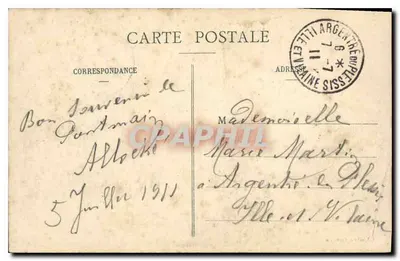 CARTE POSTALE
CORRESPONDANCE
ADRESSE
ARGENTRÉ DU PLESSIS
ILLE ET VILAINE
6 *
7 -7
11
Bon Souvenir de
5 Juillet 1911
Mademoiselle
Marie Martin
à Argentré du Plessis
Ille et Vilaine
CPARAMA.COM